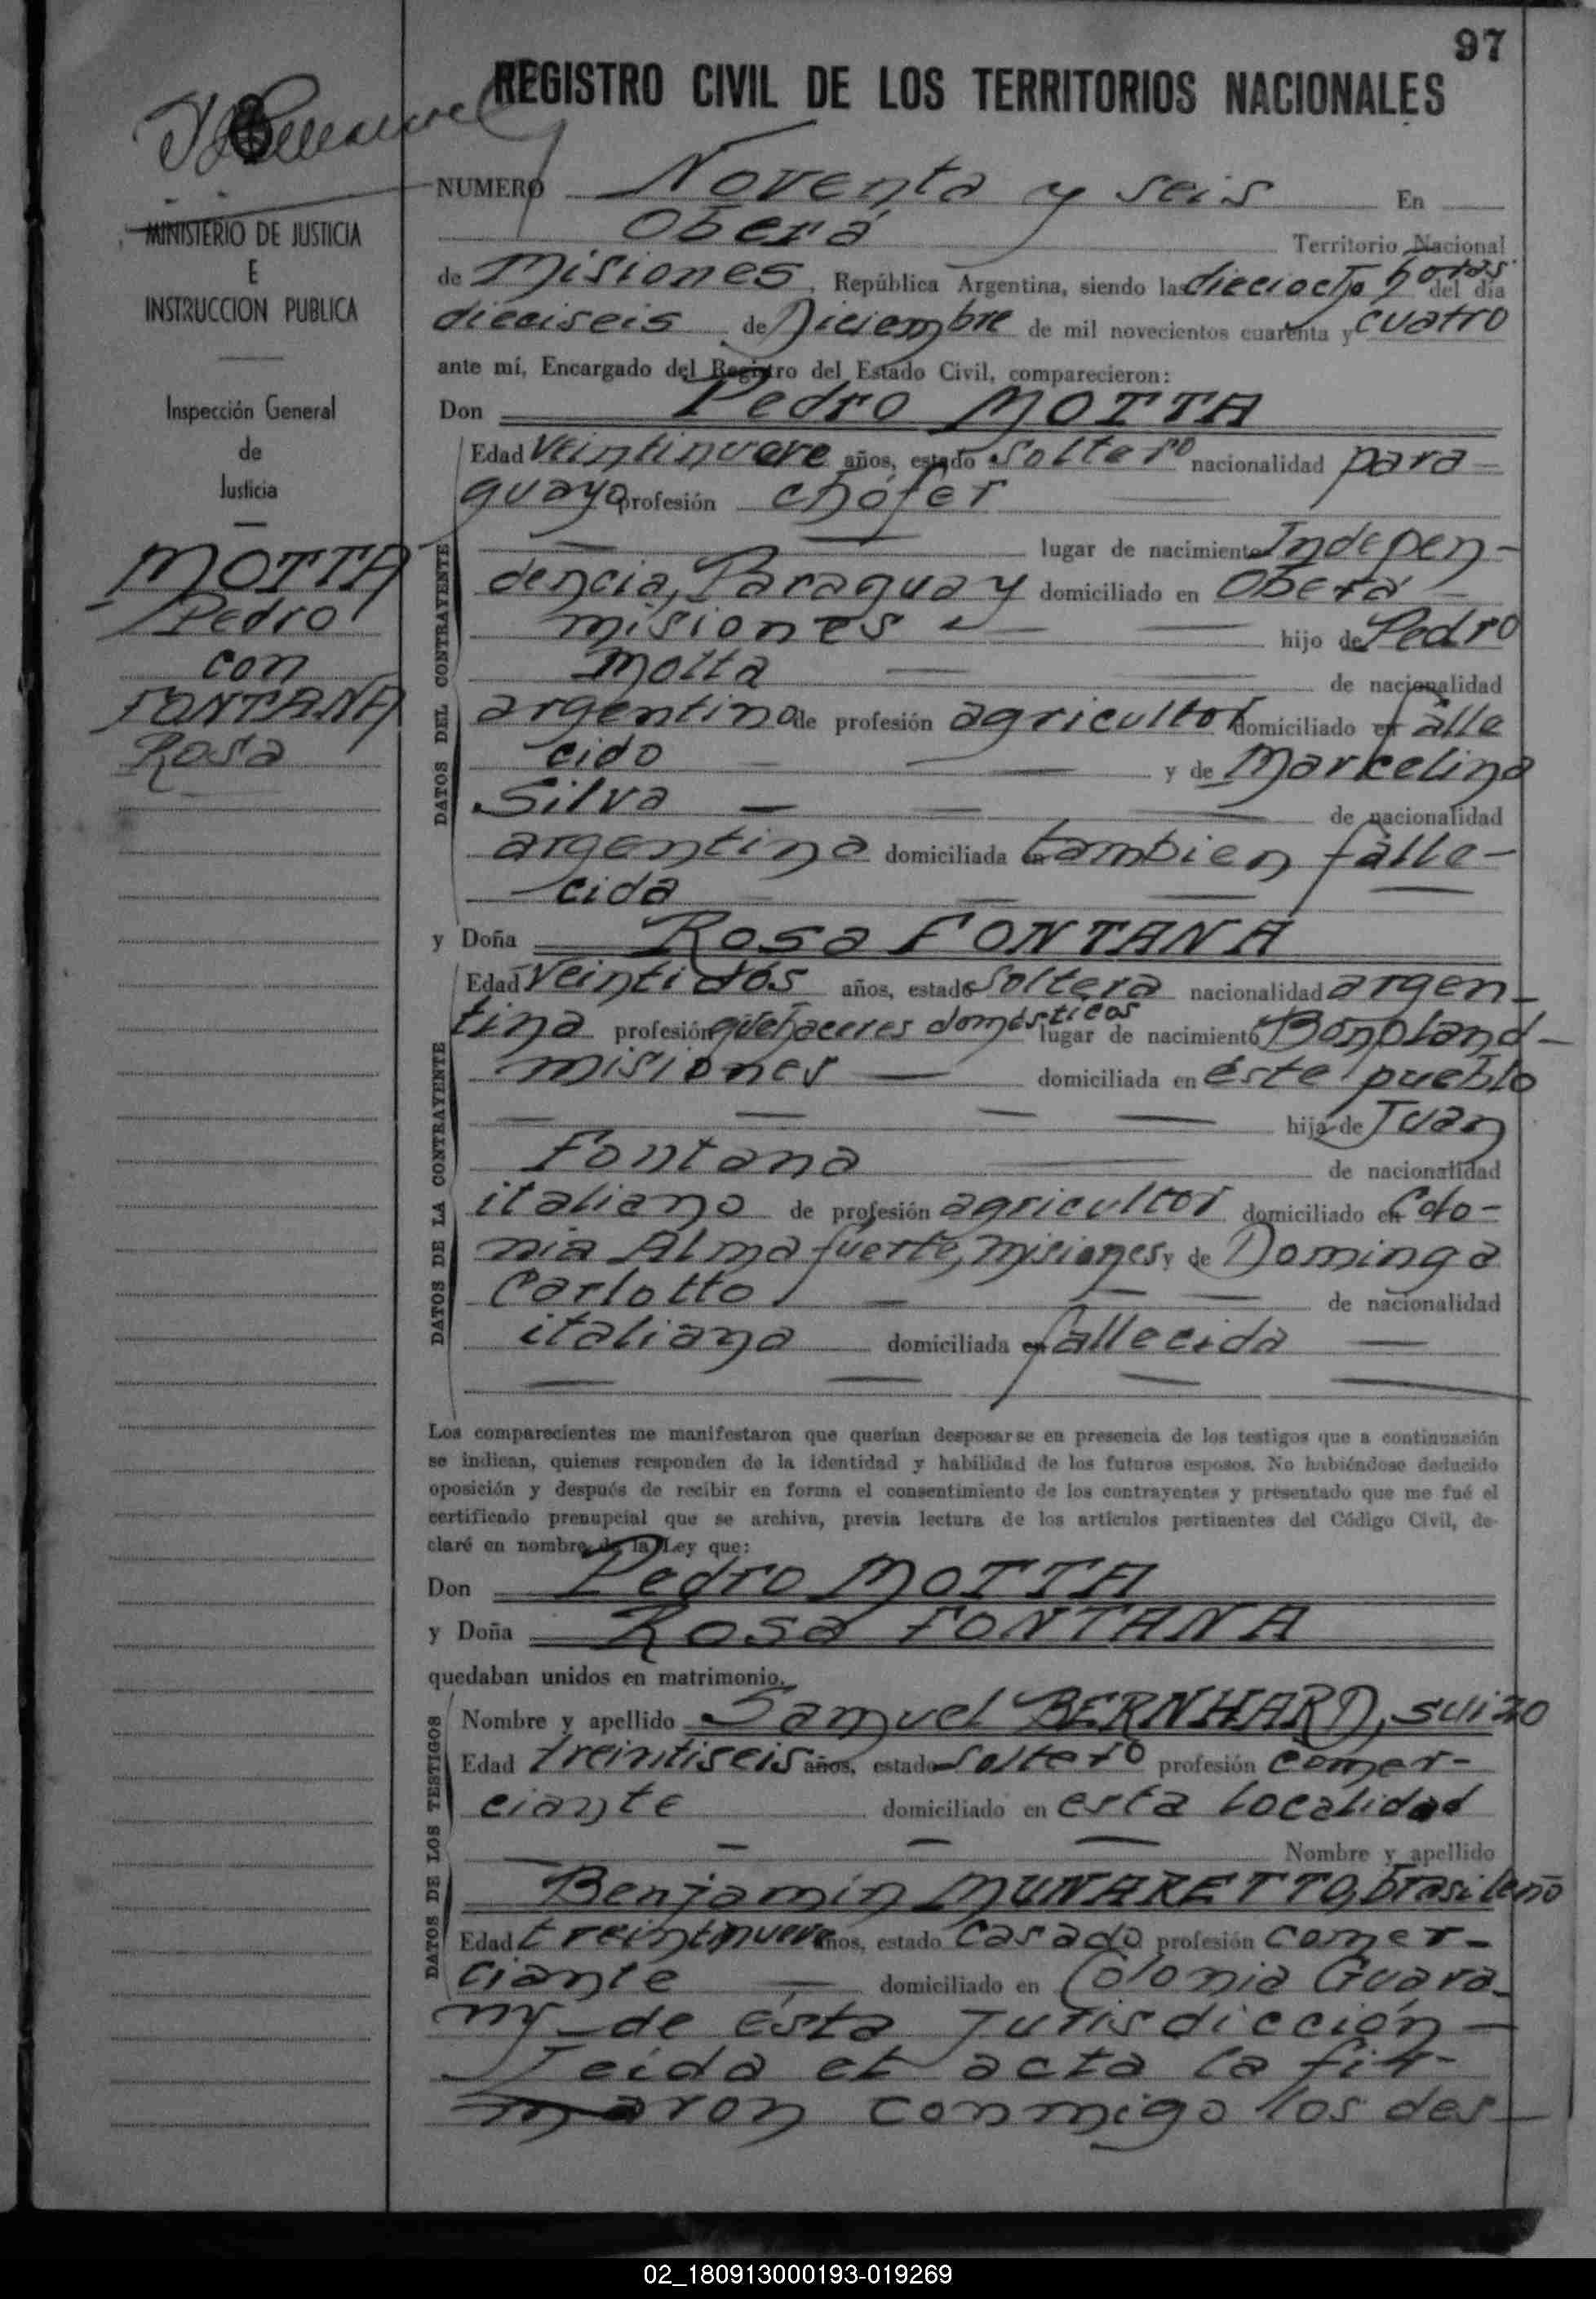 97
REGISTRO CIVIL DE LOS TERRITORIOS NACIONALES
NUMERO Noventa y seis En
Oberá Territorio Nacional
de Misiones, República Argentina, siendo las dieciocho horas del día
dieciseis de Diciembre de mil novecientos cuarenta y cuatro
ante mí, Encargado del Registro del Estado Civil, comparecieron:
Don Pedro MOTTA
Edad veintinueve años, estado soltero nacionalidad para-
guaya profesión chófer
lugar de nacimiento Indepen-
dencia, Paraguay domiciliado en Oberá
misiones hijo de Pedro
Motta de nacionalidad
argentina de profesión agricultor domiciliado en falle
cido y de Marcelina
Silva de nacionalidad
argentina domiciliada en tambien falle-
cida
y Doña Rosa FONTANA
Edad veintidós años, estado soltera nacionalidad argen-
tina profesión quehaceres domésticos lugar de nacimiento Bonpland-
misiones domiciliada en éste pueblo
hija de Juan
Fontana de nacionalidad
italiano de profesión agricultor domiciliado en Colo-
nia Almafuerte, Misiones y de Dominga
Carlotto de nacionalidad
italiana domiciliada en fallecida
Los comparecientes me manifestaron que querían desposarse en presencia de los testigos que a continuación
se indican, quienes responden de la identidad y habilidad de los futuros esposos. No habiéndose deducido
oposición y después de recibir en forma el consentimiento de los contrayentes y presentado que me fué el
certificado prenupcial que se archiva, previa lectura de los artículos pertinentes del Código Civil, de-
claré en nombre de la Ley que:
Don Pedro MOTTA
y Doña Rosa FONTANA
quedaban unidos en matrimonio.
Nombre y apellido Samuel BERNHARD, suizo
Edad treintiseis años, estado soltero profesión comer-
ciante domiciliado en esta localidad
Nombre y apellido
Benjamín MUNARETTO, brasileño
Edad treintinueve años, estado casado profesión comer-
ciante domiciliado en Colonia Guara-
ny de ésta Jurisdicción
Leída el acta la fir-
maron conmigo los des-
MINISTERIO DE JUSTICIA
E
INSTRUCCION PUBLICA
Inspección General
de
Justicia
MOTTA
Pedro
con
FONTANA
Rosa
DATOS DEL CONTRAYENTE
DATOS DE LA CONTRAYENTE
DATOS DE LOS TESTIGOS
02_180913000193-019269